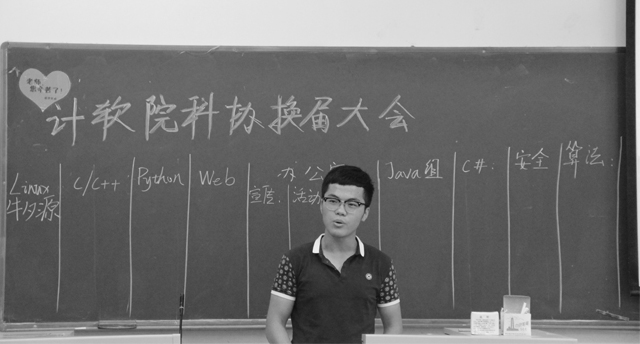 老师,
您辛苦了!
计软院科协换届大会
Linux
C/C++
Python
Web
办公
宣
活动
Java组
C#:
安全
算法: